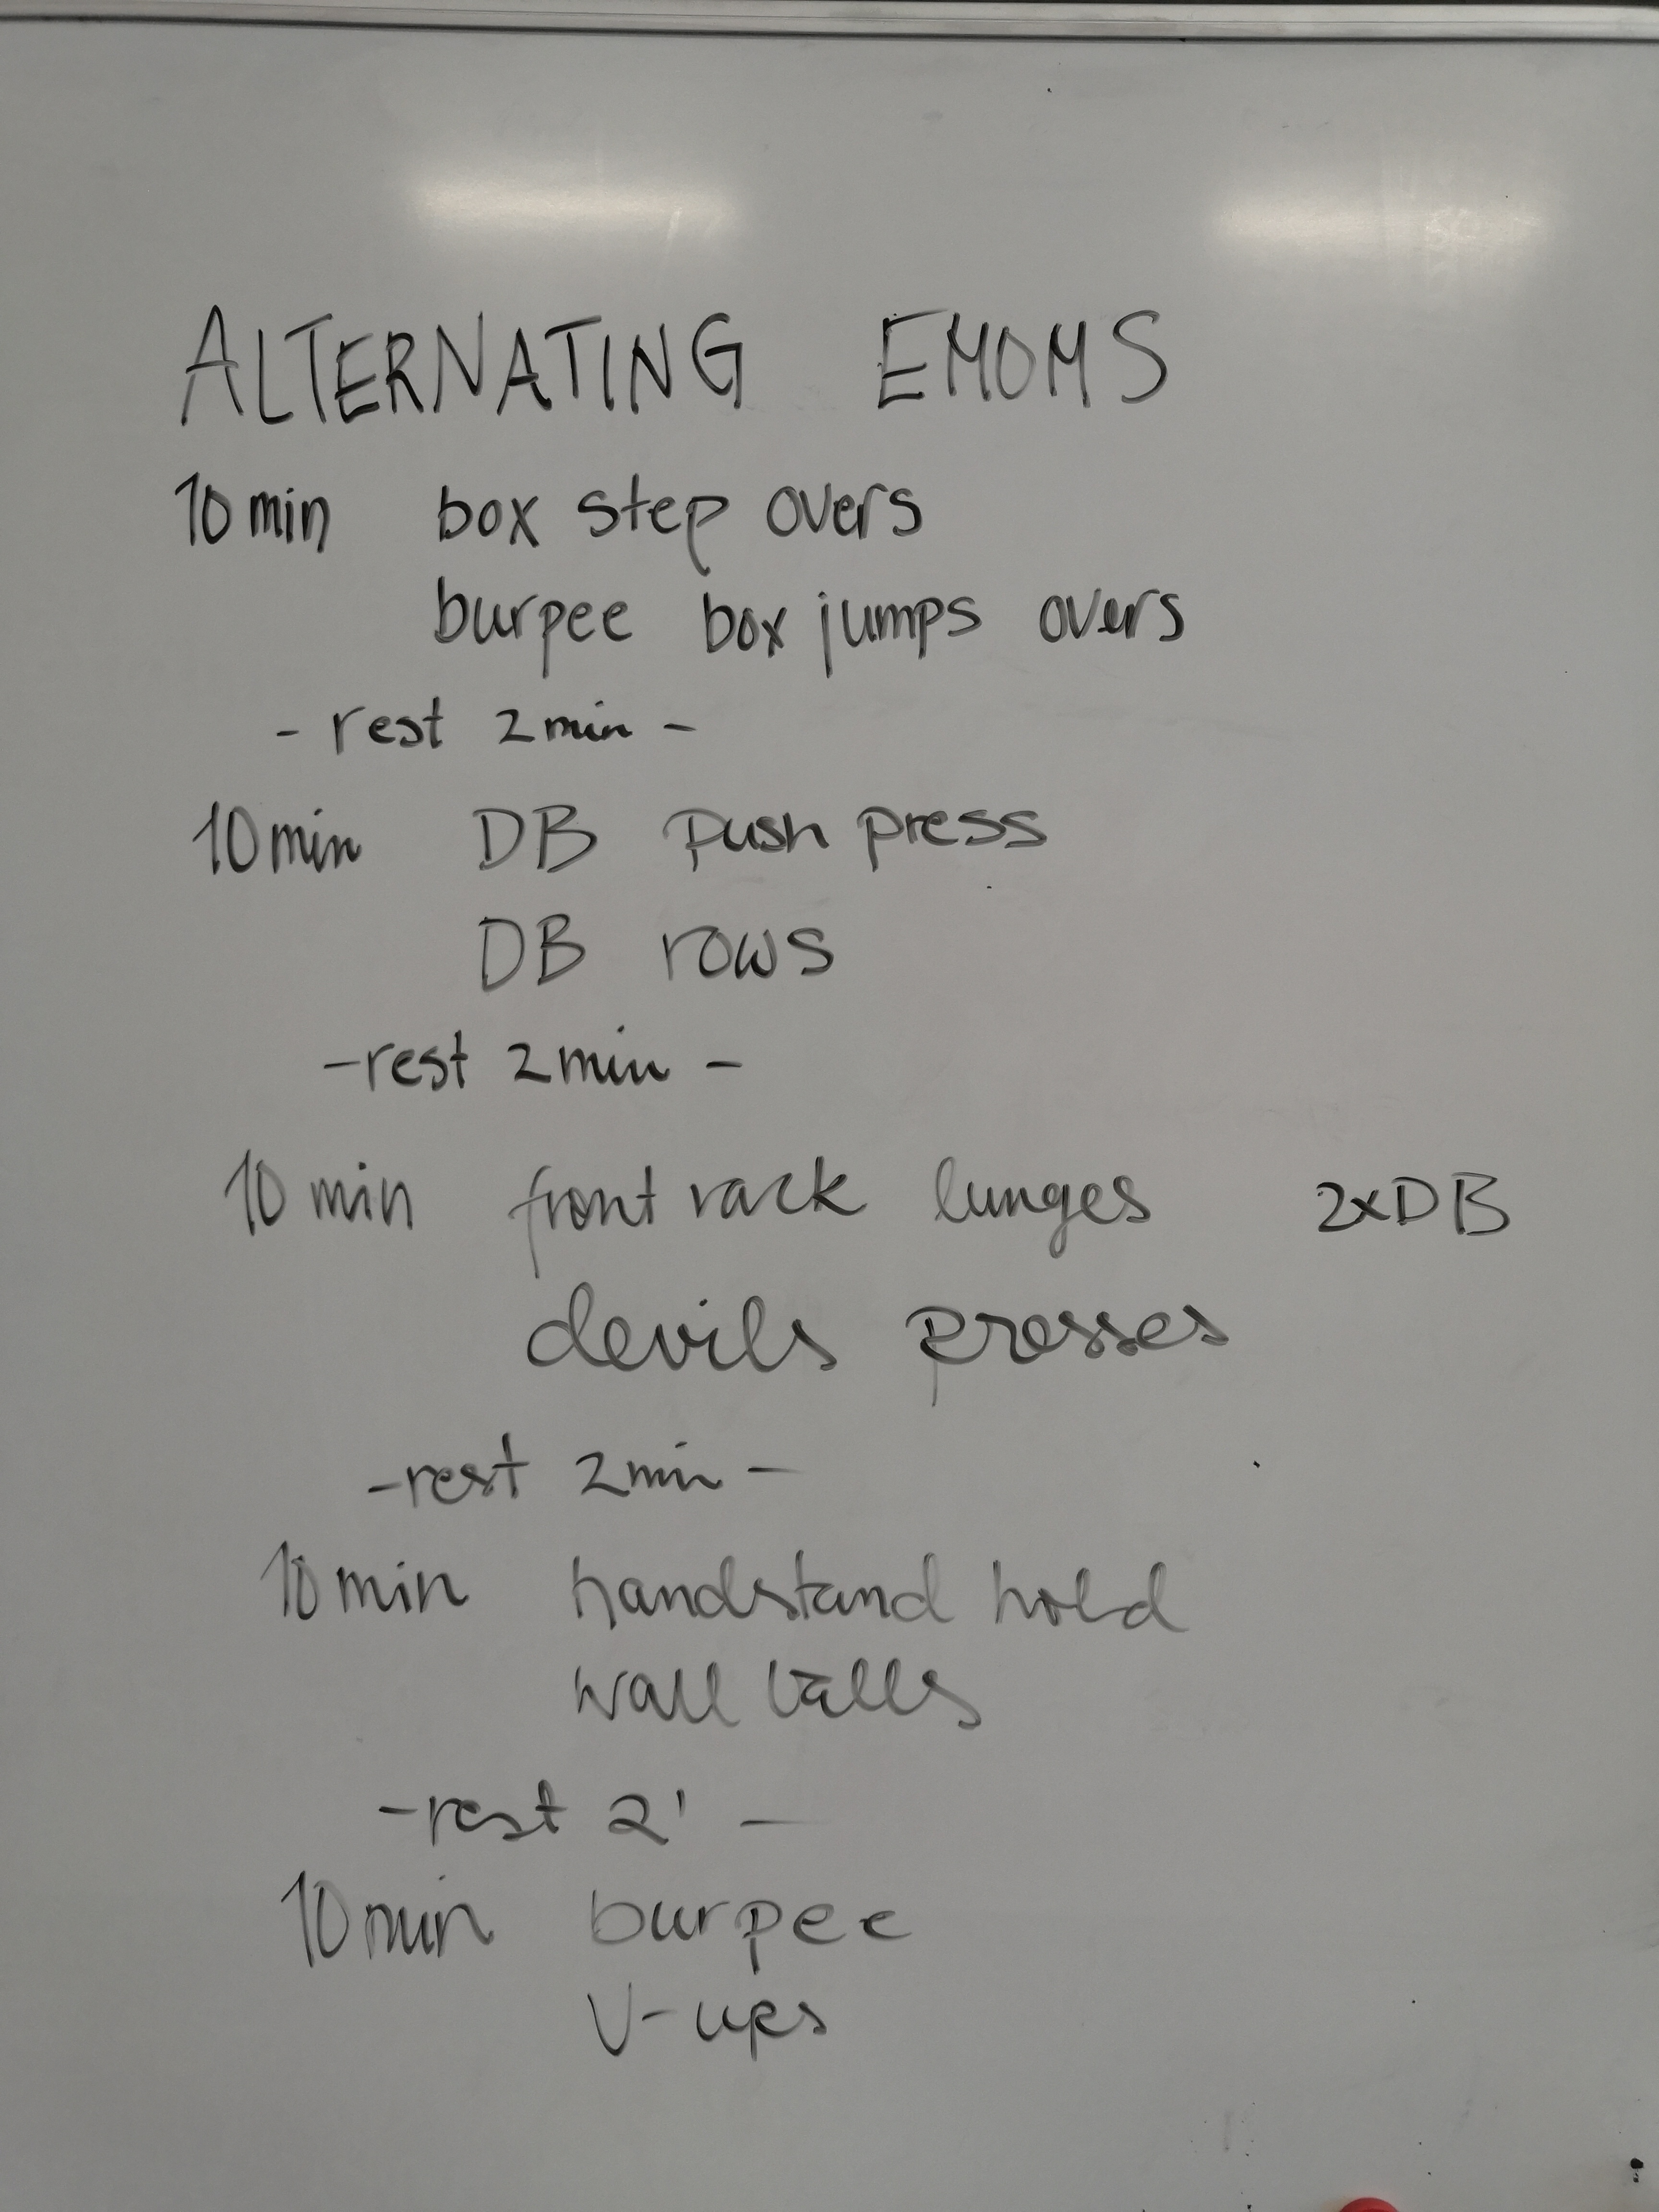 ALTERNATING EMOMS
10 min box step overs
burpee box jumps overs
- rest 2 min -
10 min DB push press
DB rows
- rest 2 min -
10 min front rack lunges 2xDB
devils presses
- rest 2 min -
10 min handstand hold
wall balls
- rest 2' -
10 min burpee
V-ups